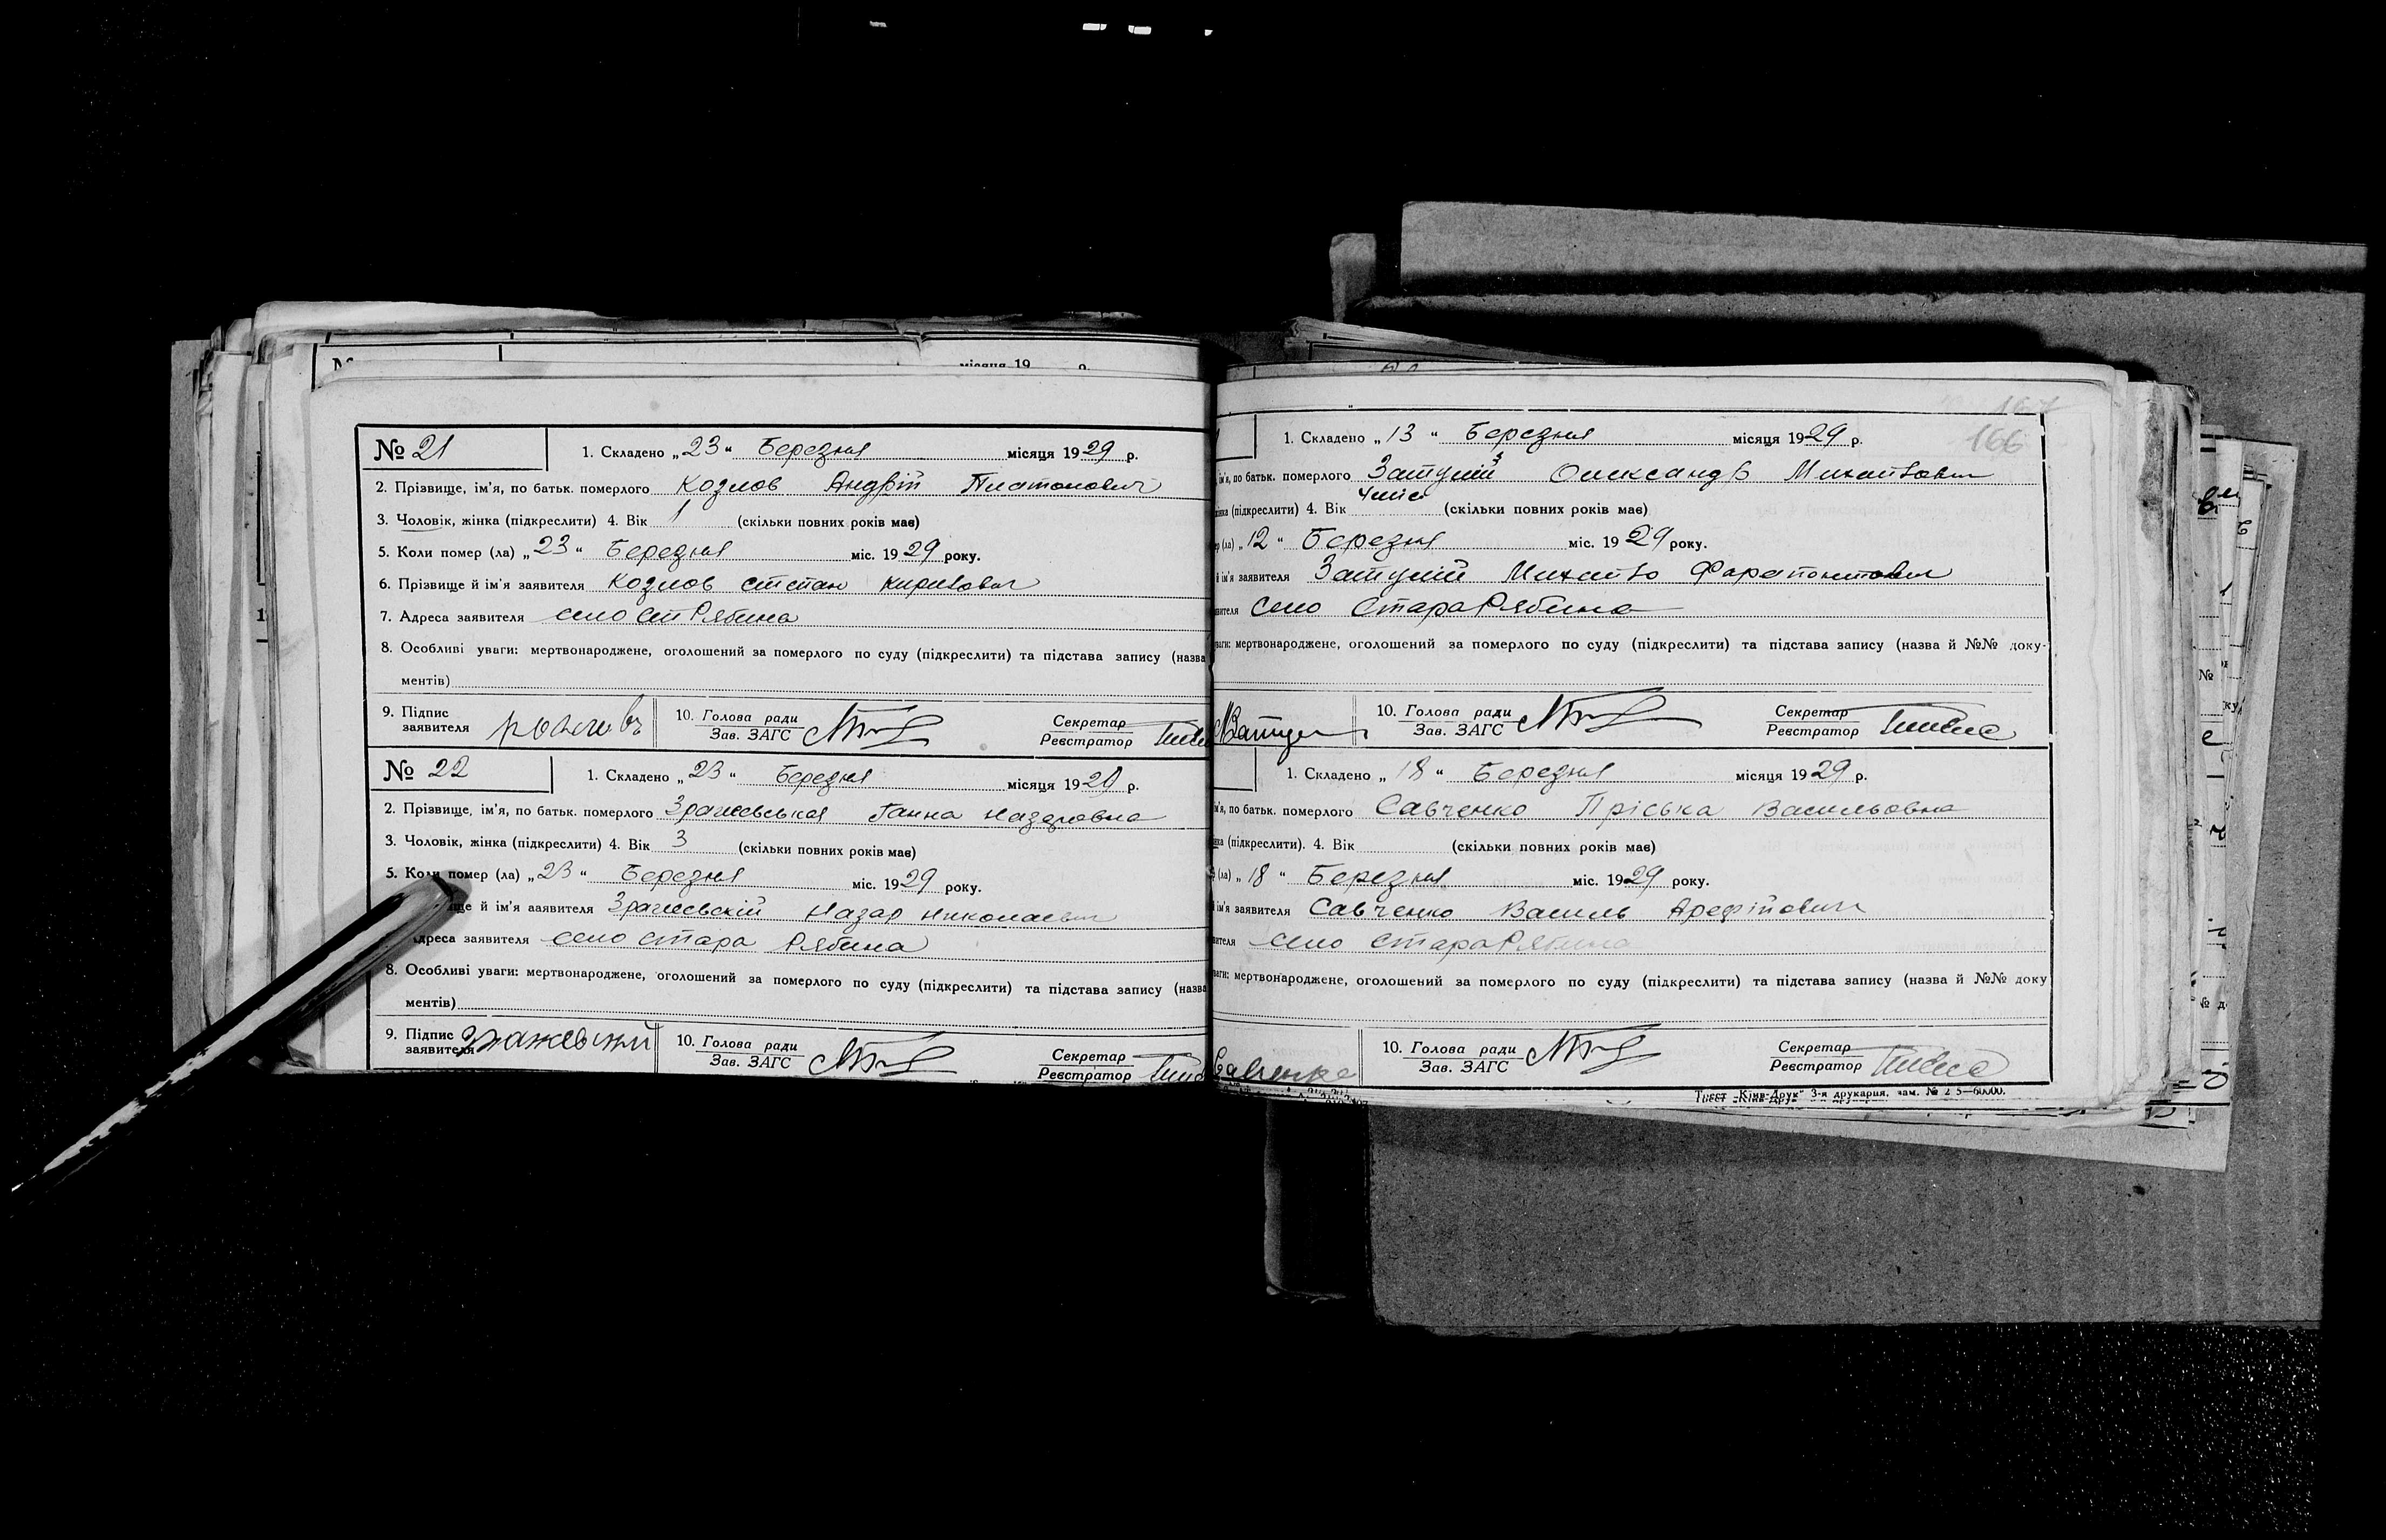 місяця 19 р.
№ 21
1. Складено „23“ Березня місяця 1929 р.
2. Прізвище, ім'я, по батьк. померлого Козлов Андрій Платонович
3. Чоловік, жінка (підкреслити) 4. Вік 1 (скільки повних років має)
5. Коли помер (ла) „23“ Березня міс. 1929 року.
6. Прізвище й ім'я заявителя Козлов Степан Кирилович
7. Адреса заявителя село Ст Рябина
8. Особливі уваги: мертвонароджене, оголошений за померлого по суду (підкреслити) та підстава запису (назва
ментів)
9. Підпис заявителя
10. Голова ради
Зав. ЗАГС
Секретар
Реєстратор
№ 22
1. Складено „23“ Березня місяця 1929 р.
2. Прізвище, ім'я, по батьк. померлого Зражевськая Ганна Назаровна
3. Чоловік, жінка (підкреслити) 4. Вік 3 (скільки повних років має)
5. Коли помер (ла) „23“ Березня міс. 1929 року.
ще й ім'я заявителя Зражевскій Назар Николаевич
дреса заявителя село Стара Рябина
8. Особливі уваги: мертвонароджене, оголошений за померлого по суду (підкреслити) та підстава запису (назва
ментів)
9. Підпис заявителя Зражевский
10. Голова ради
Зав. ЗАГС
Секретар
Реєстратор
167
166
1. Складено „13“ Березня місяця 1929 р.
ім'я, по батьк. померлого Затулій Олександр Михайлович
жінка (підкреслити) 4. Вік 4 міс (скільки повних років має)
(ла) „12“ Березня міс. 1929 року.
й ім'я заявителя Затулій Михайло Фарапонтович
явителя село Стара Рябина
уваги: мертвонароджене, оголошений за померлого по суду (підкреслити) та підстава запису (назва й №№ доку-
10. Голова ради
Зав. ЗАГС
Секретар
Реєстратор
1. Складено „18“ Березня місяця 1929 р.
ім'я, по батьк. померлого Савченко Пріська Васильовна
(підкреслити). 4. Вік (скільки повних років має)
(ла) „18“ Березня міс. 1929 року.
й ім'я заявителя Савченко Василь Арефійович
явителя село Стара Рябина
уваги: мертвонароджене, оголошений за померлого по суду (підкреслити) та підстава запису (назва й №№ доку
Савченко
10. Голова ради
Зав. ЗАГС
Секретар
Реєстратор
Трест „Київ-Друк“ 3-я друкарня, зам. № 2 5—60000.